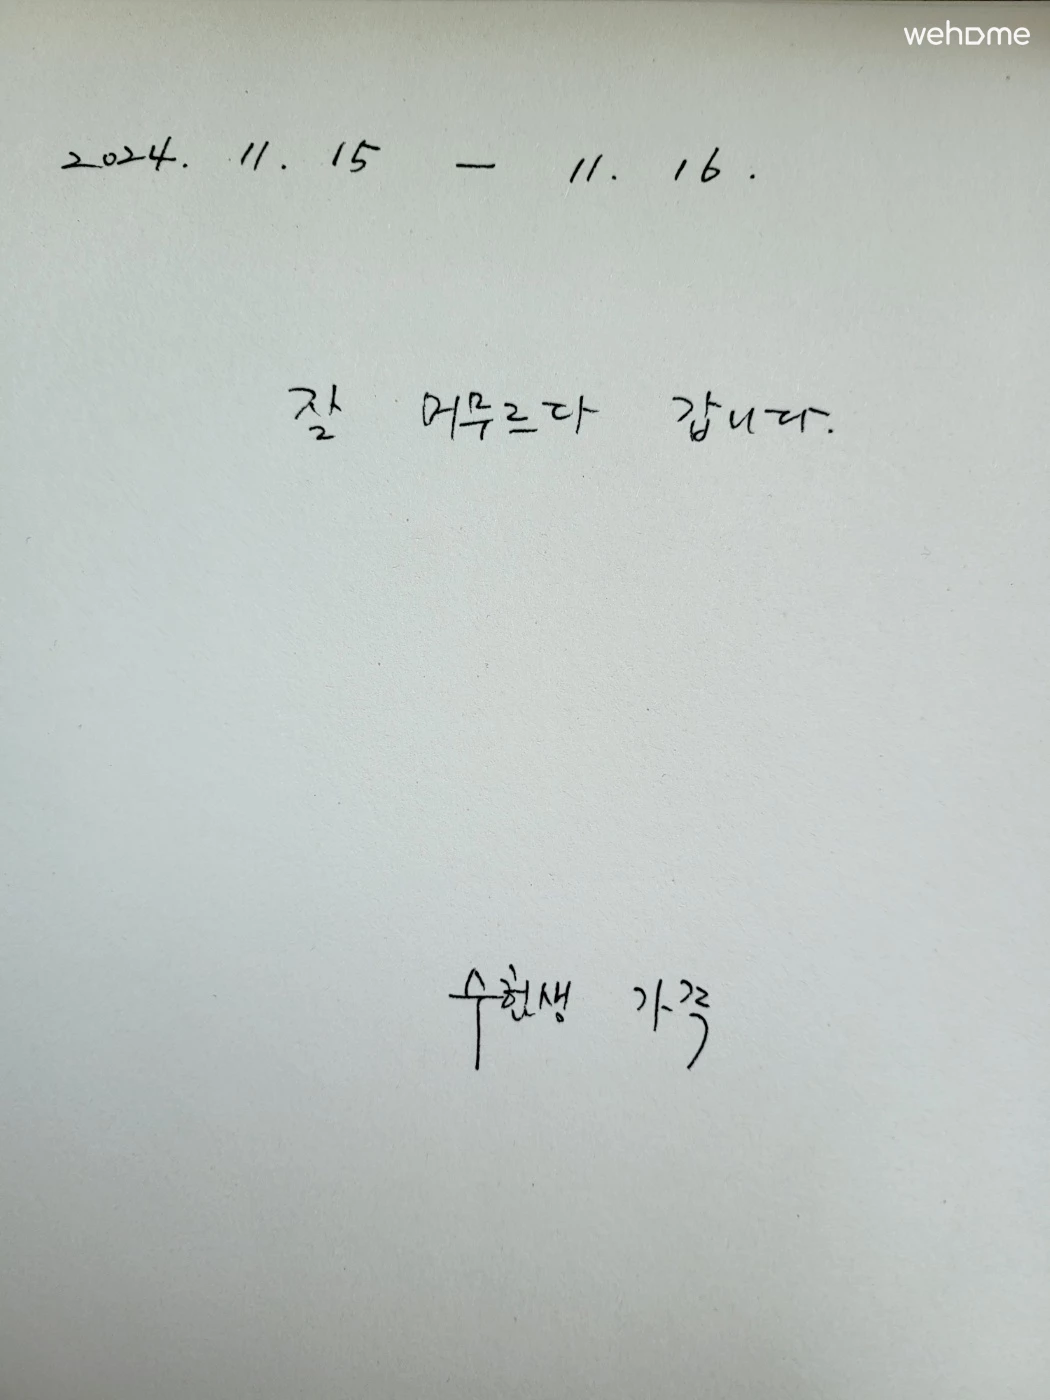 wehome
2024. 11. 15 - 11. 16.
잘 머무르다 갑니다.
수험생 가족